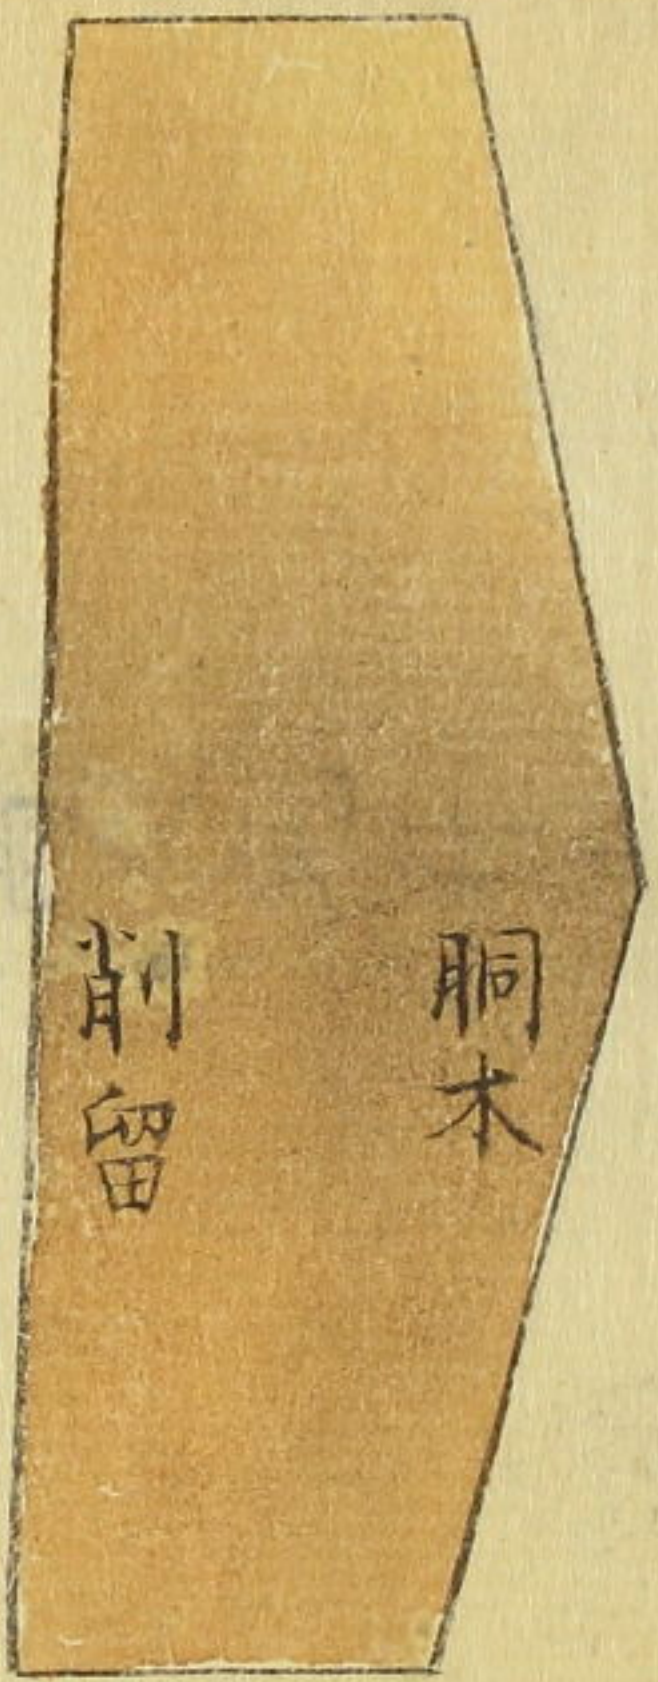 胴木
削留